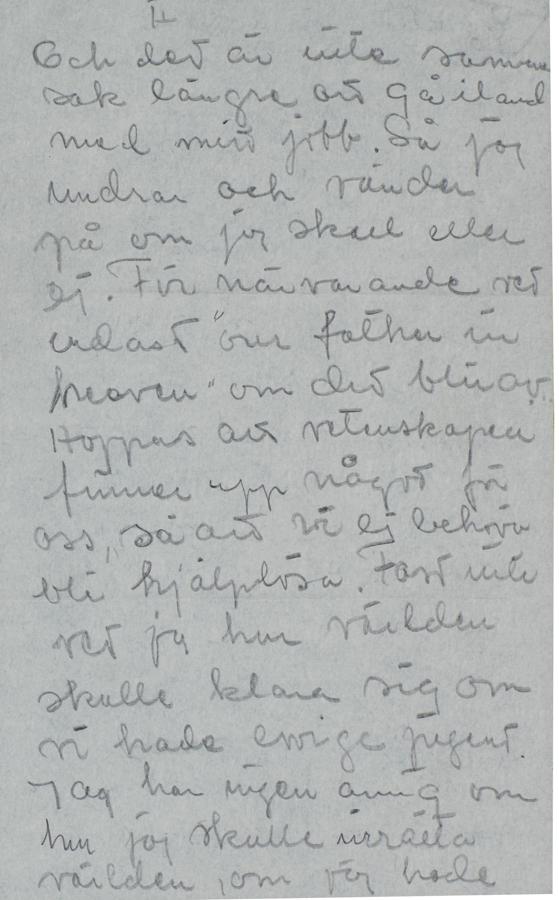 II
Och det är inte samma
sak längre att gå iland
med mitt jobb. Så jag
undrar och vänder
på om jag skall eller
ej. För närvarande vet
endast "our father in
heaven" om det blir av.
Hoppas att vetenskapen
finner upp något för
oss, så att vi ej behöva
bli hjälplösa. Fast inte
vet jag hur världen
skulle klara sig om
vi hade evige jugent.
Jag har ingen aning om
hur jag skulle inrätta
världen, om jag hade